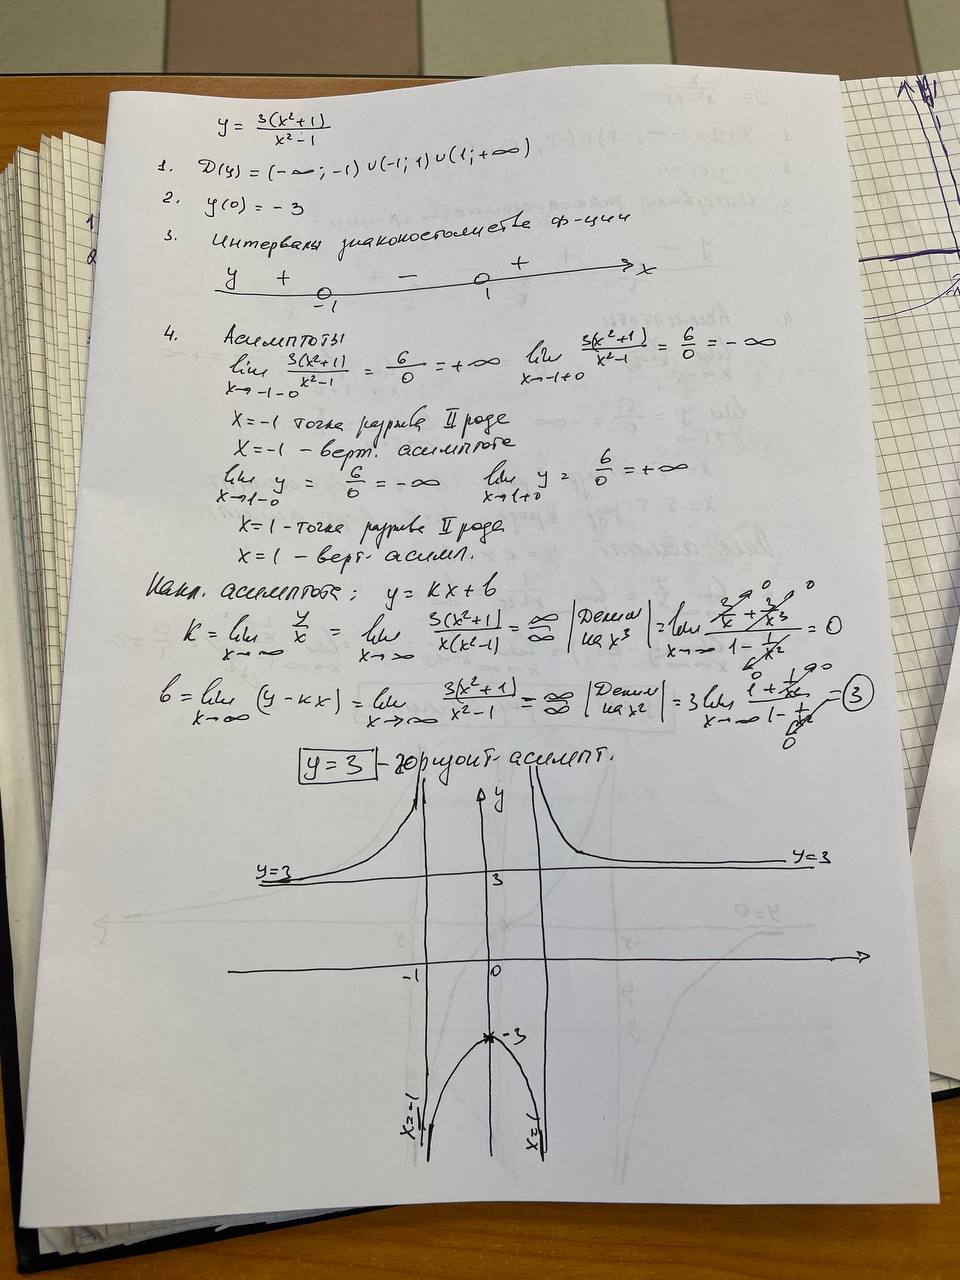 y = 3(x²+1)/(x²-1)
1. D(y) = (-∞; -1) ∪ (-1; 1) ∪ (1; +∞)
2. y(0) = -3
3. Интервалы знакопостоянства ф-ции
y + - + x
-1 1
4. Асимптоты
lim x→-1-0 3(x²+1)/(x²-1) = 6/0 = +∞ lim x→-1+0 3(x²+1)/(x²-1) = 6/0 = -∞
x = -1 точка разрыва II рода
x = -1 - верт. асимптота
lim x→1-0 y = 6/0 = -∞ lim x→1+0 y = 6/0 = +∞
x = 1 - точка разрыва II рода
x = 1 - верт. асимп.
Накл. асимптота: y = kx + b
k = lim x→∞ y/x = lim x→∞ 3(x²+1)/(x(x²-1)) = ∞/∞ |Делим на x³| = lim x→∞ (3/x + 3/x³)/(1 - 1/x²) = 0
0 0 0
b = lim x→∞ (y - kx) = lim x→∞ 3(x²+1)/(x²-1) = ∞/∞ |Делим на x²| = 3 lim x→∞ (1 + 1/x²)/(1 - 1/x²) = 3
0 0
y = 3 - горизонт. асимпт.
y
y=3 3 y=3
-1 0
-3
x=-1 x=1